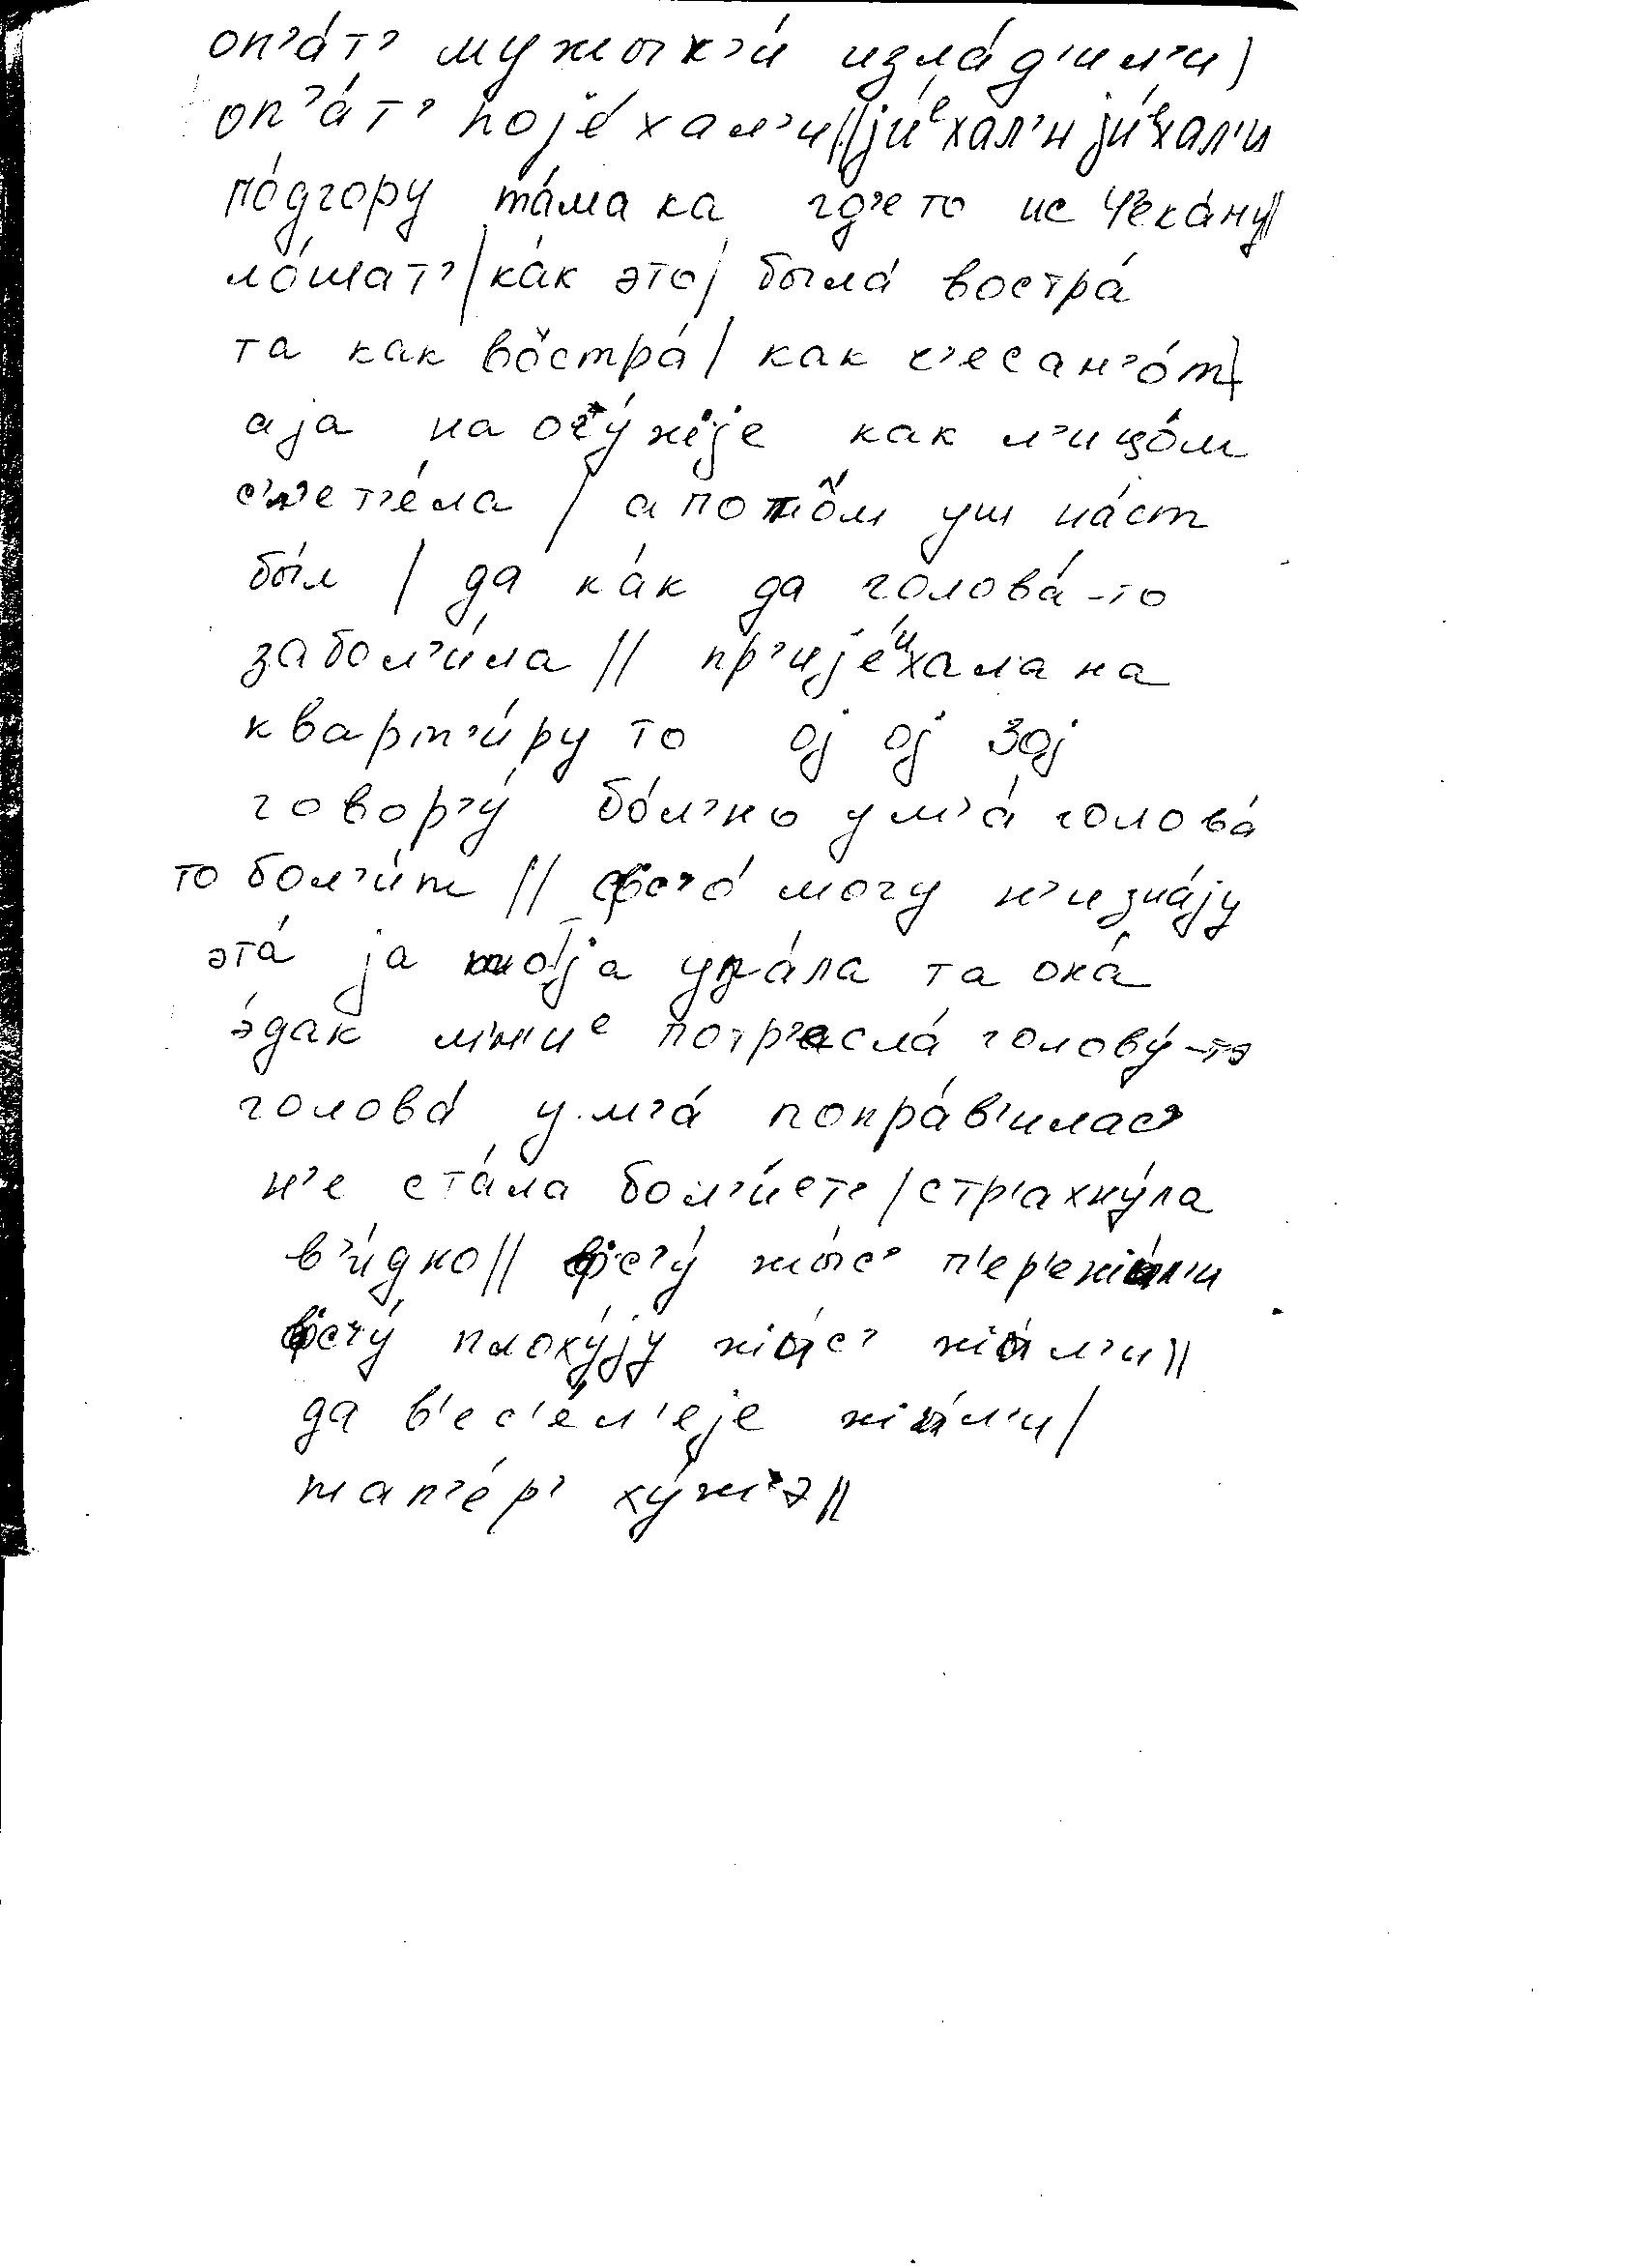 оп’а́т’ мужык’и́ изла́д’ил’и |
оп’а́т’ појéхал’и || ји́ᵉхал’и ји́ᵉхал’и
по́дгору та́мака гд’ето ис Чека́ну ||
ло́шат’ | ка́к это | была́ востра́
та как востра́ | как с’есан’о́т |
аја на как л’ицо́м
с’л’ет’е́ла | а пото̂м уш на́ст
бы́л | да ка́к да голова́-то
забол’и́ла || пр’ијéᶦхала на
кварт’и́ру то ој ој зој
говор’у́ бо́л’но ум’а́ голова́
то бол’и́т || фс’о́ могу н’изна́ју
эта́ ја упа́ла та она́
э́дак мн’иᵉ потр’асла́ голову́-то
голова́ у м’а́ попра́в’илас’
н’е ста́ла бол’и́ет’ | стр’ахну́ла
в’и́дно || фс’у́ жы́с’ п’ер’ежы́л’и
фс’у́ плоху́ју жы́с’ жы́л’и ||
да в’ес’е́л’еје жы́л’и |
тап’е́р’ ху́жэ ||